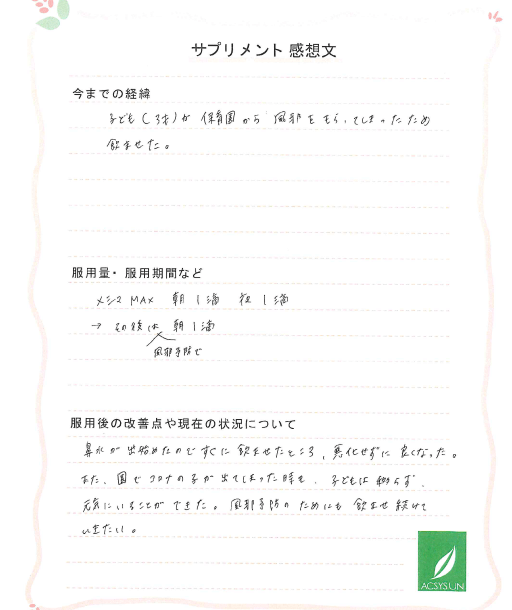 サプリメント 感想文
今までの経緯
子ども(3才)が 保育園から 風邪をもらってしまったため
飲ませた。
服用量・服用期間など
メシマMAX 朝1滴 夜1滴
→ その後は 朝1滴
風邪予防で
服用後の改善点や現在の状況について
鼻水が出始めたのですぐに飲ませたところ、悪化せずに良くなった。
また、園でコロナの子が出てしまった時も、子どもは移らず、
元気にいることができた。風邪予防のためにも飲ませ続けて
いきたい。
ACSYSUN